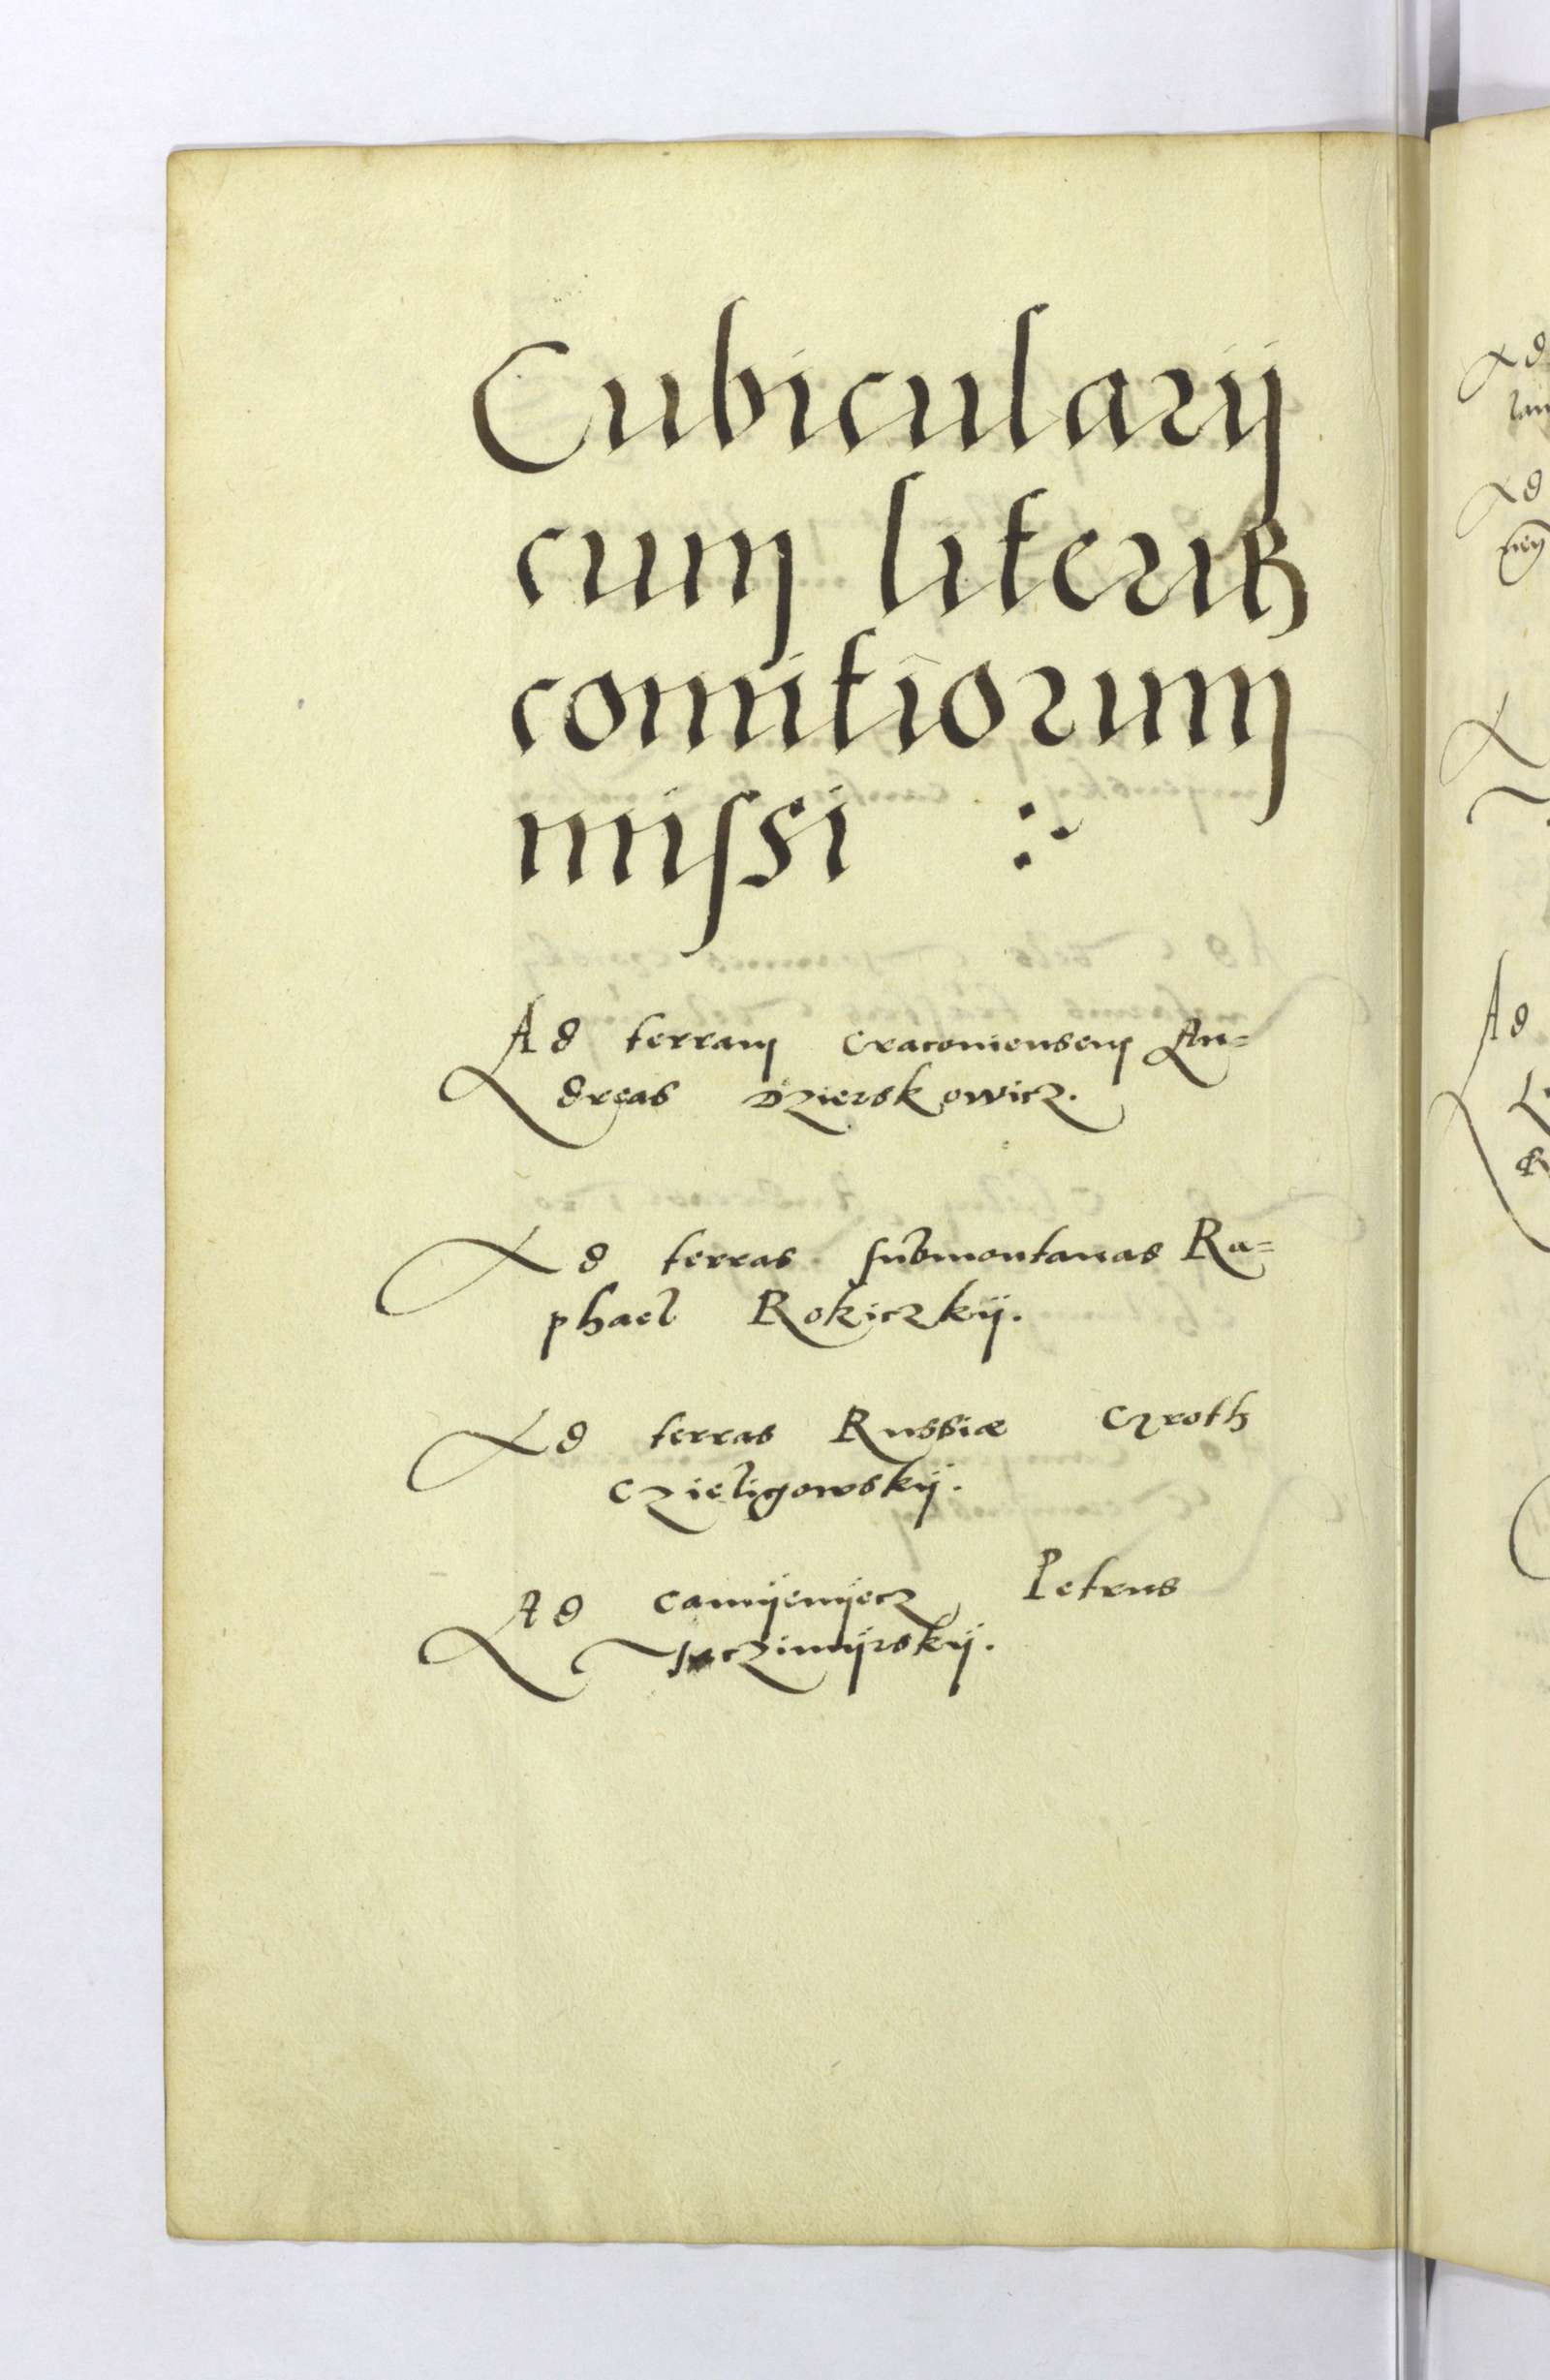 Cubicularij
cum literis
comitiorum
missi
Ad terram Cracoviensem An=
dreas Dzierskowicz.
Ad terras submontanas Ra=
phael Rokiczkij.
Ad terras Russiæ Czroth
Czieligowskij.
Ad Camijenijecz Petrus